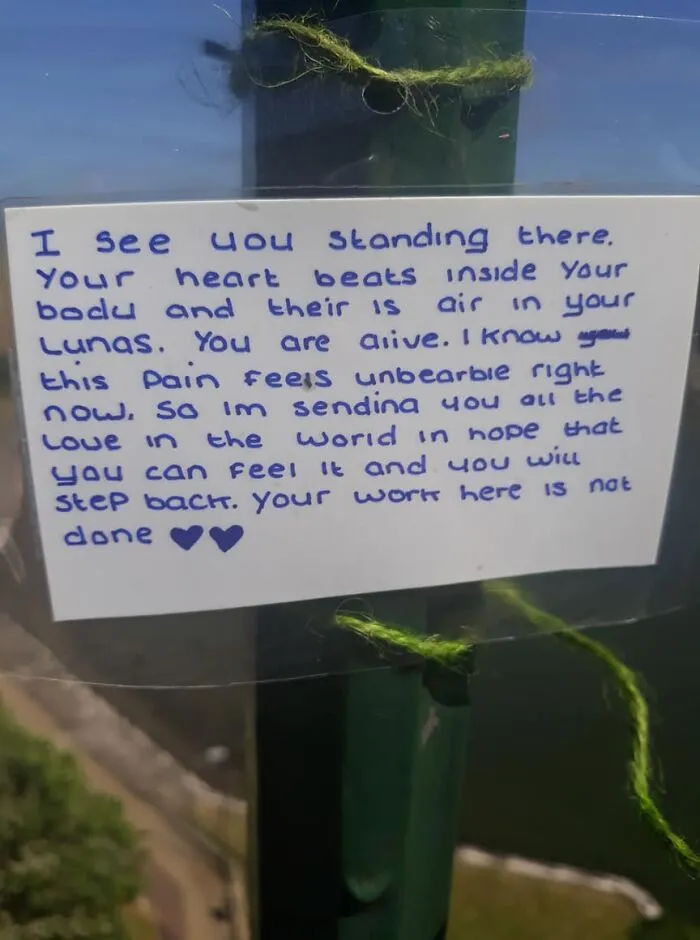 I see you standing there.
Your heart beats inside your
body and their is air in your
Lungs. You are alive. I know you
this Pain feels unbearble right
now. So im sending you all the
love in the world in hope that
you can feel it and you will
step back. Your work here is not
done ♥♥